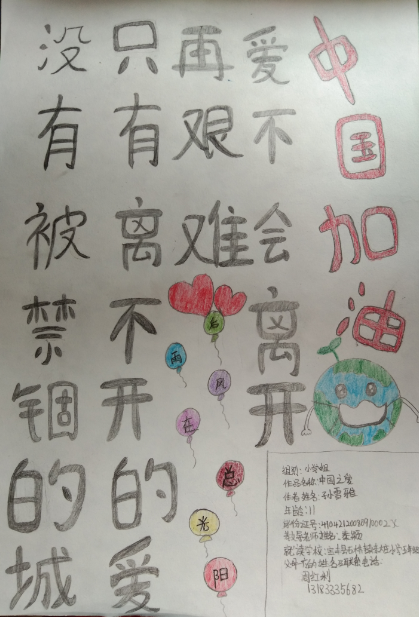 中国加油
爱不会离开
再艰难
只有离不开的爱
没有被禁锢的城
后
雨
风
在
总
光
阳
组别：小学组
作品名称：中国之爱
作者姓名：孙雪
年龄：11
身份证号：
指导老师姓名：
就读学校：
父母 姓名及联系电话：
周红利
13183335682